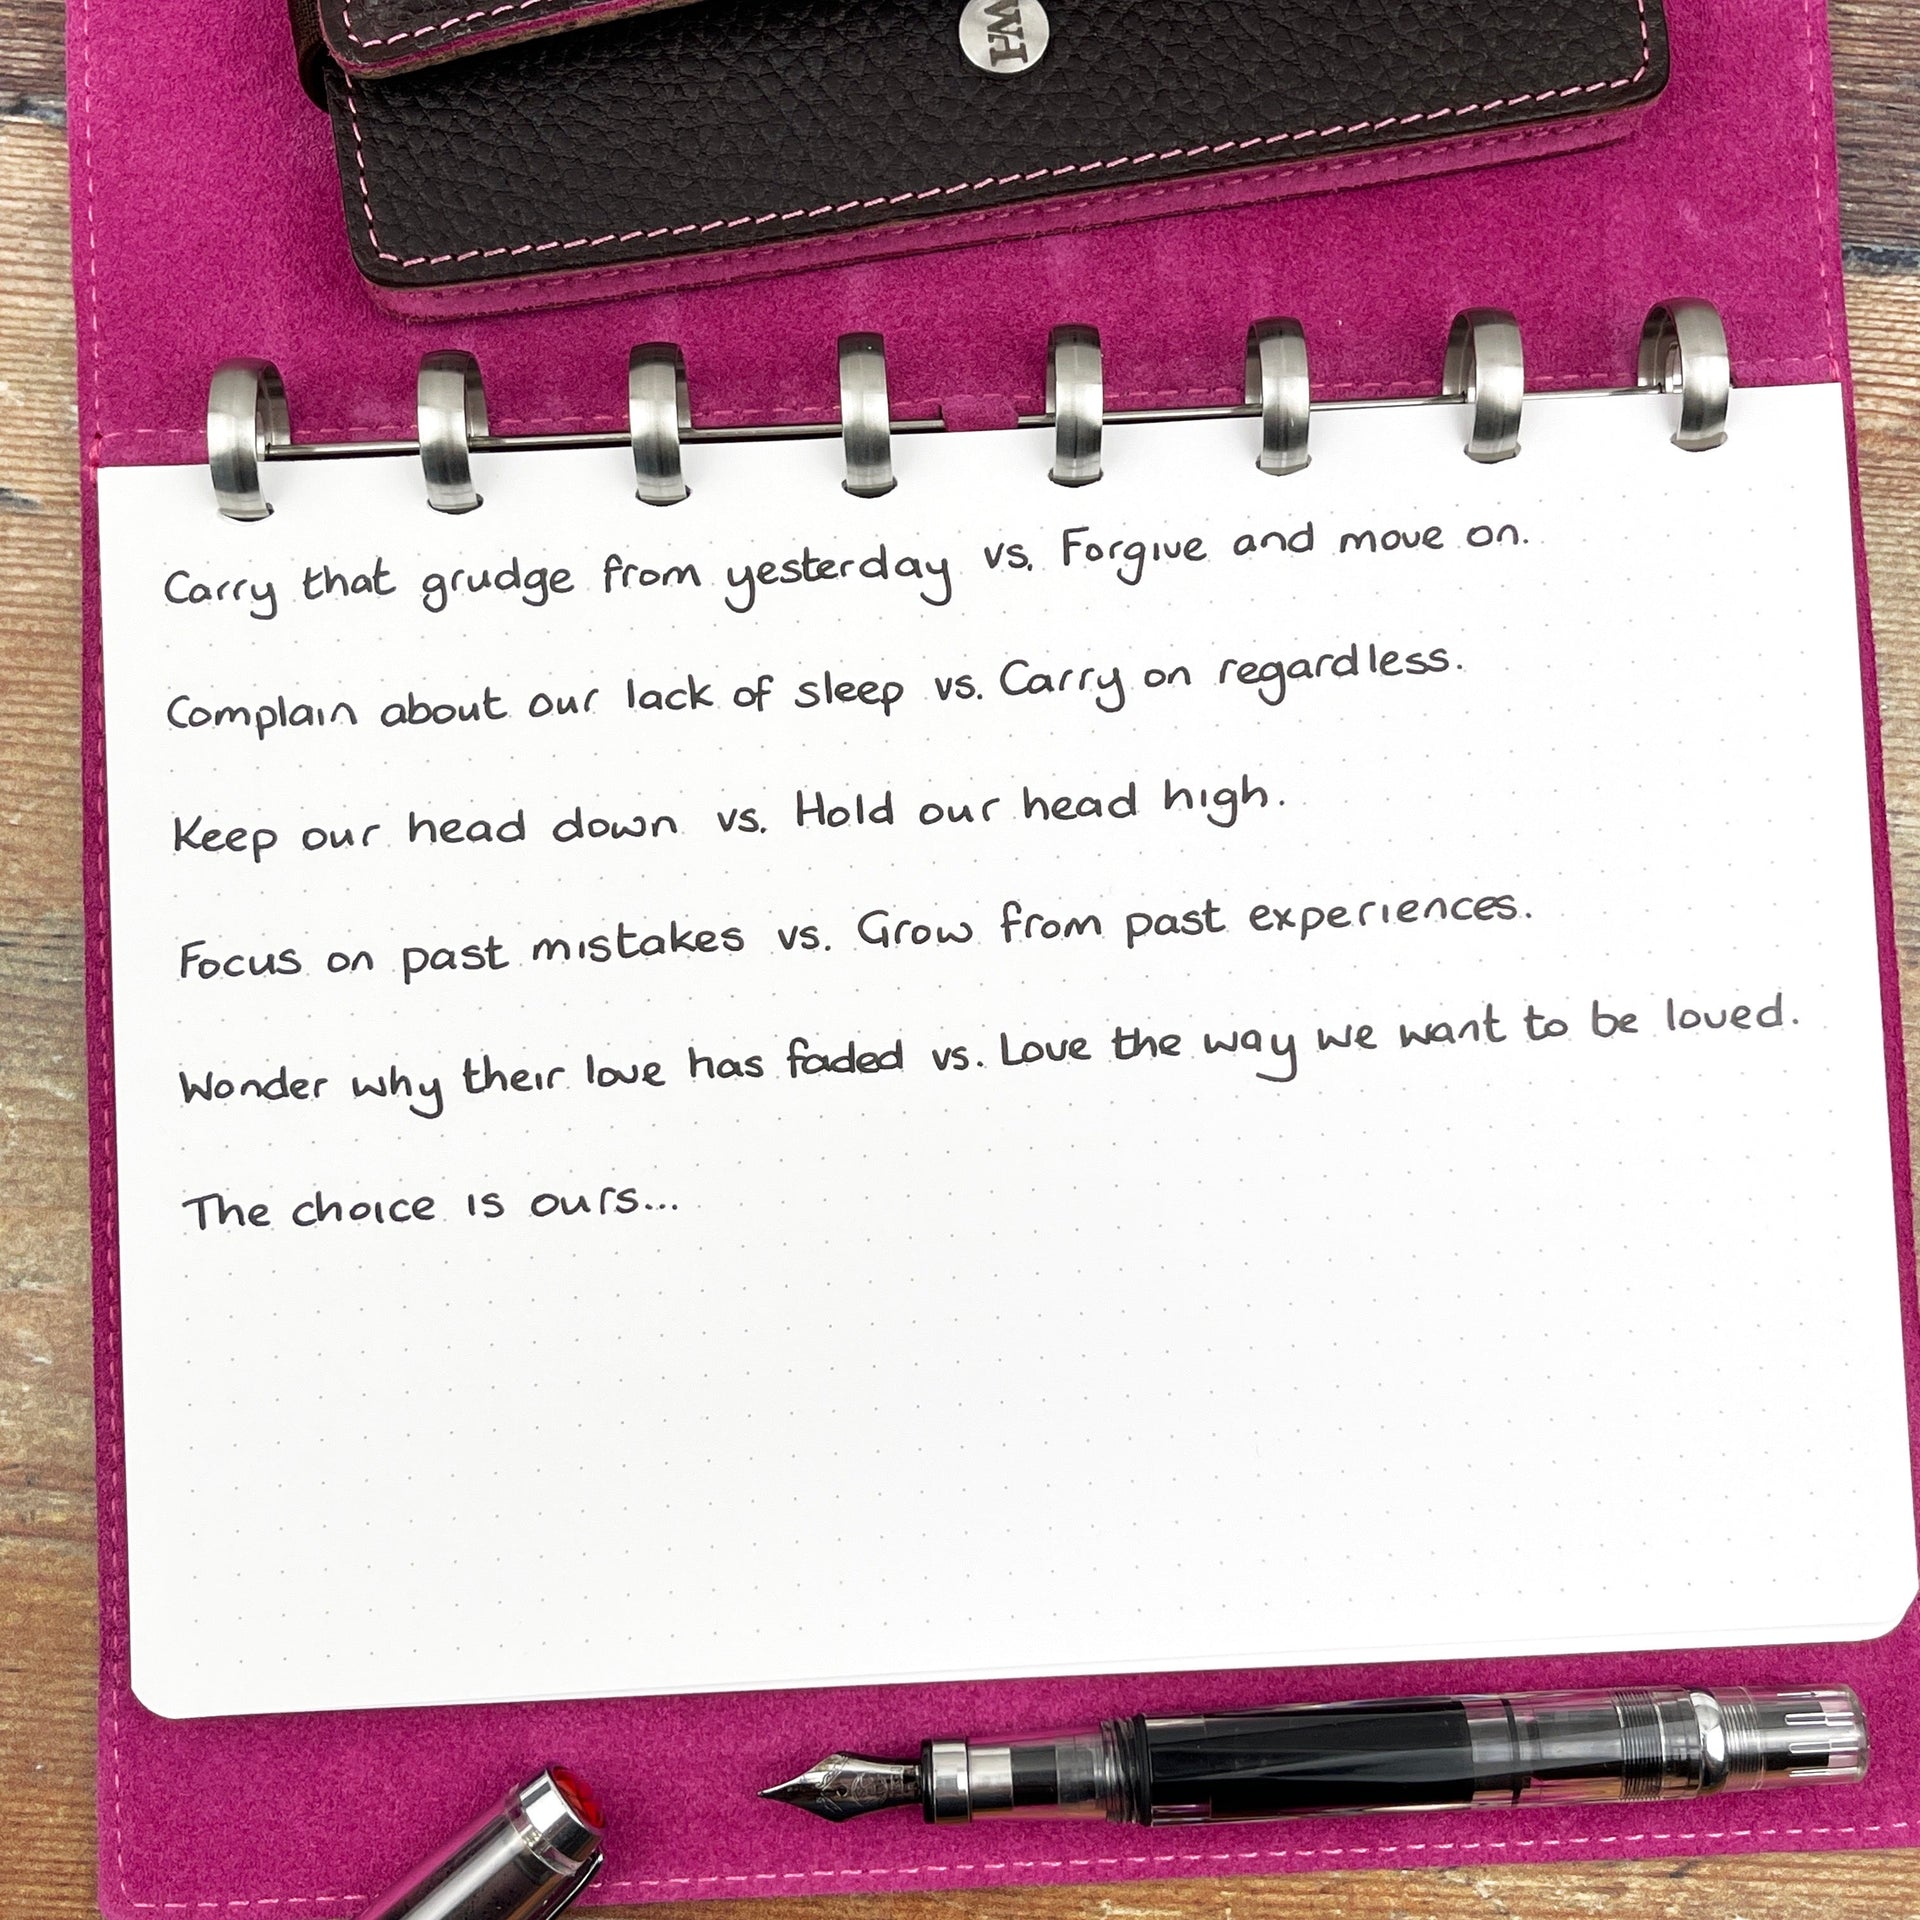 WH
Carry that grudge from yesterday vs. Forgive and move on.
Complain about our lack of sleep vs. Carry on regardless.
Keep our head down vs. Hold our head high.
Focus on past mistakes vs. Grow from past experiences.
Wonder why their love has faded vs. Love the way we want to be loved.
The choice is ours...